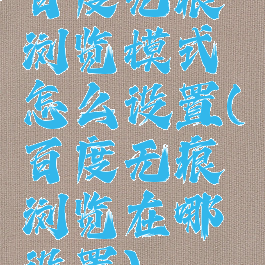 百度无痕
浏览模式
怎么设置(
百度无痕
浏览在哪
设置)